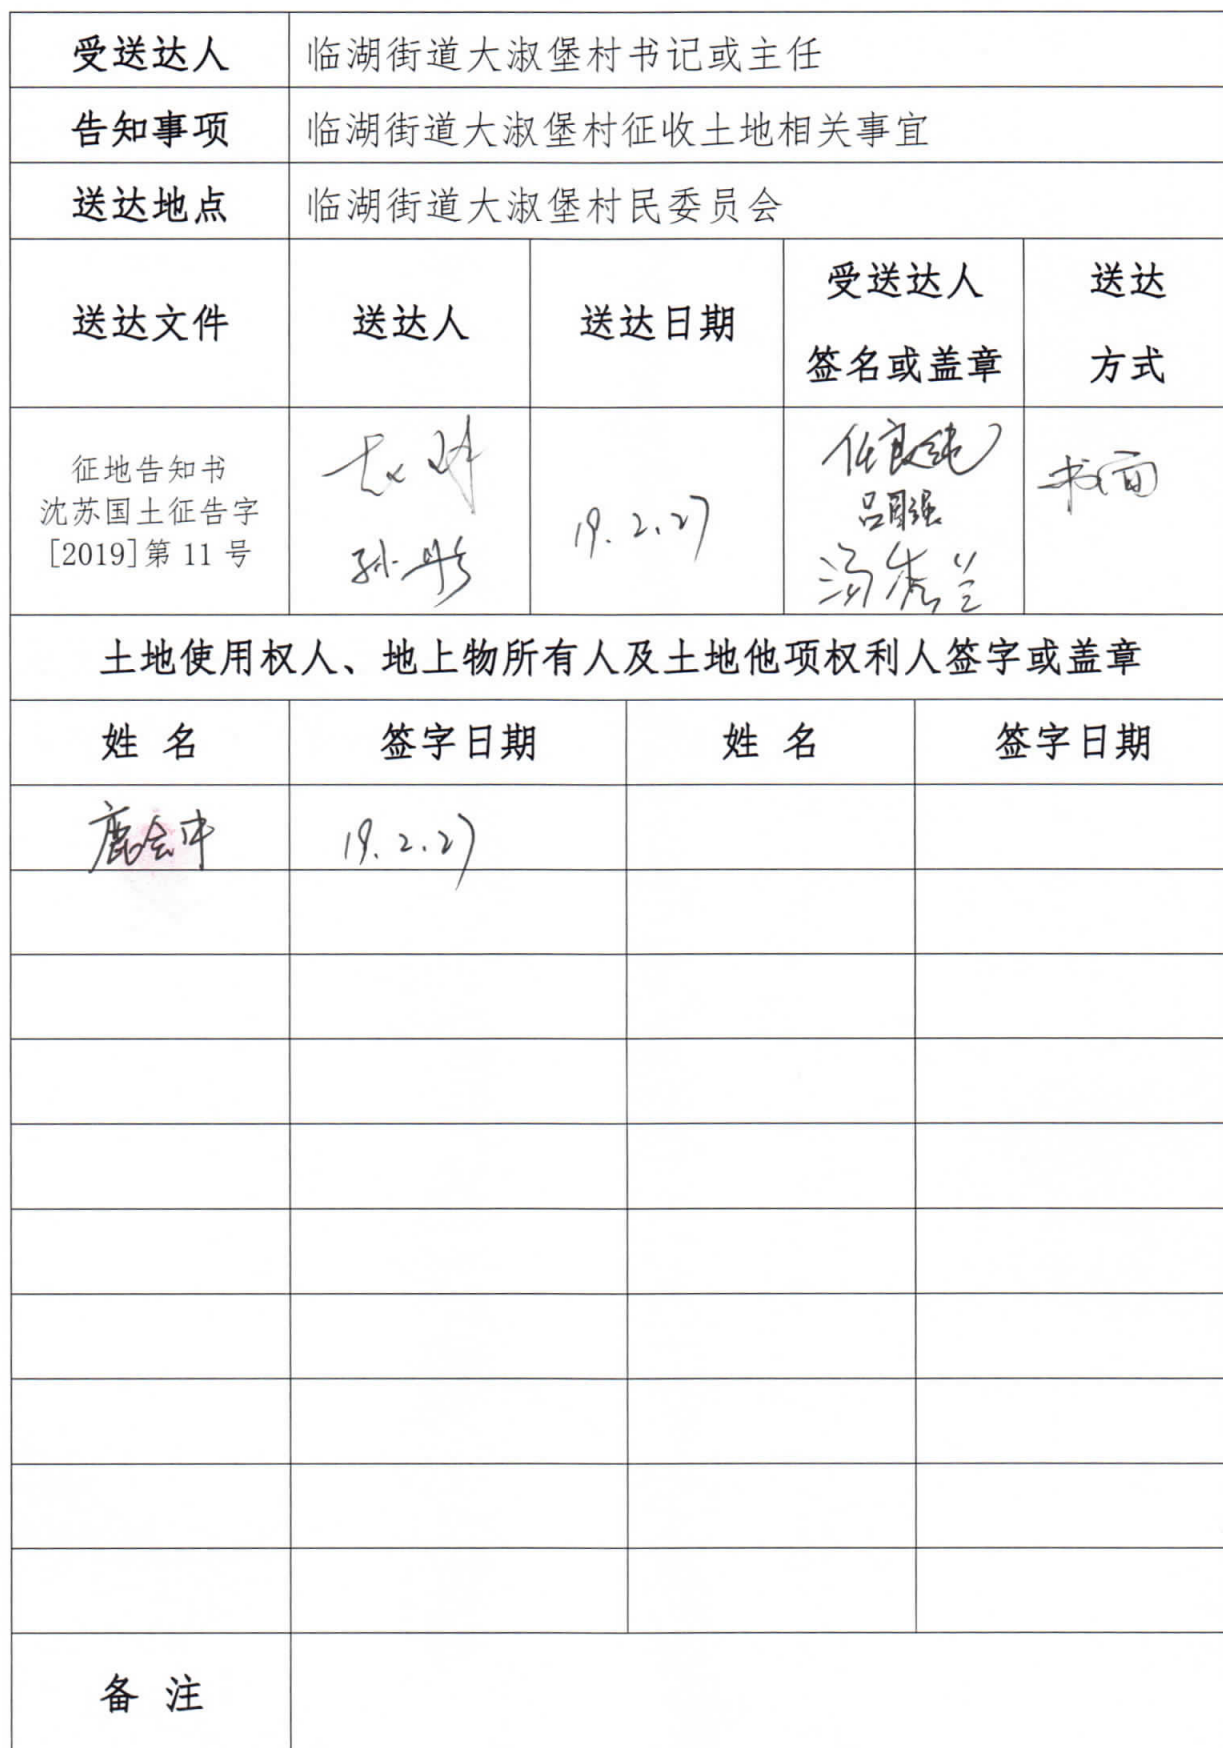 受送达人 临湖街道大淑堡村书记或主任
告知事项 临湖街道大淑堡村征收土地相关事宜
送达地点 临湖街道大淑堡村民委员会
送达文件 送达人 送达日期 受送达人 签名或盖章 送达 方式
征地告知书
沈苏国土征告字
[2019]第 11 号
19.2.27
书面
土地使用权人、地上物所有人及土地他项权利人签字或盖章
姓 名 签字日期 姓 名 签字日期
19.2.27
备 注